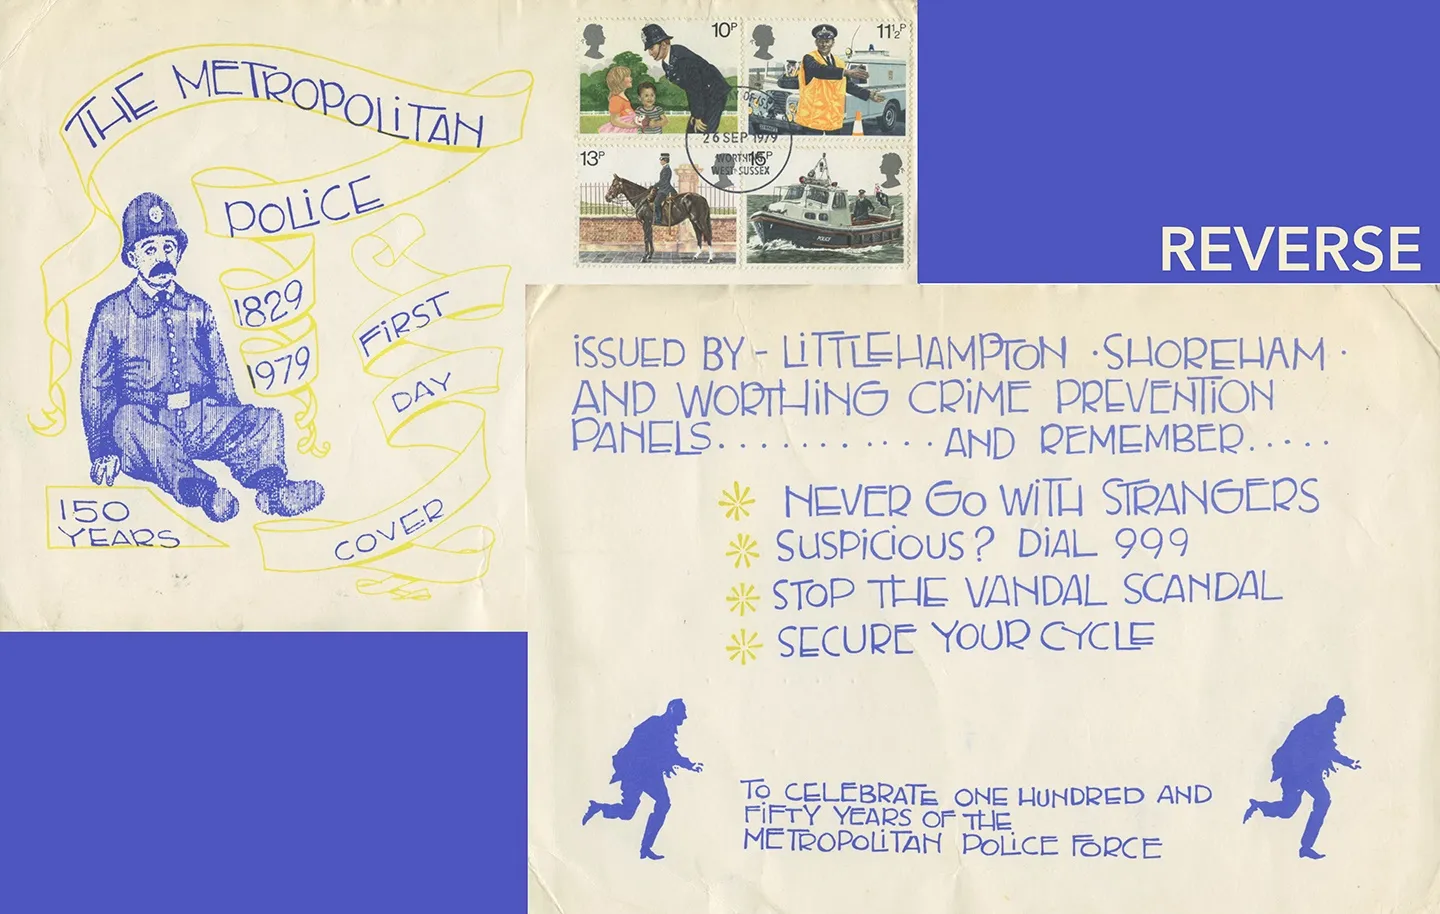 THE METROPOLITAN
POLICE
1829
1979
FIRST
DAY
COVER
150
YEARS
10P
11½P
13P
15P
OF ISS
26 SEP 1979
WORTHING
WEST SUSSEX
POLICE
REVERSE
ISSUED BY - LITTLEHAMPTON · SHOREHAM ·
AND WORTHING CRIME PREVENTION
PANELS............AND REMEMBER.....
NEVER GO WITH STRANGERS
SUSPICIOUS? DIAL 999
STOP THE VANDAL SCANDAL
SECURE YOUR CYCLE
TO CELEBRATE ONE HUNDRED AND
FIFTY YEARS OF THE
METROPOLITAN POLICE FORCE